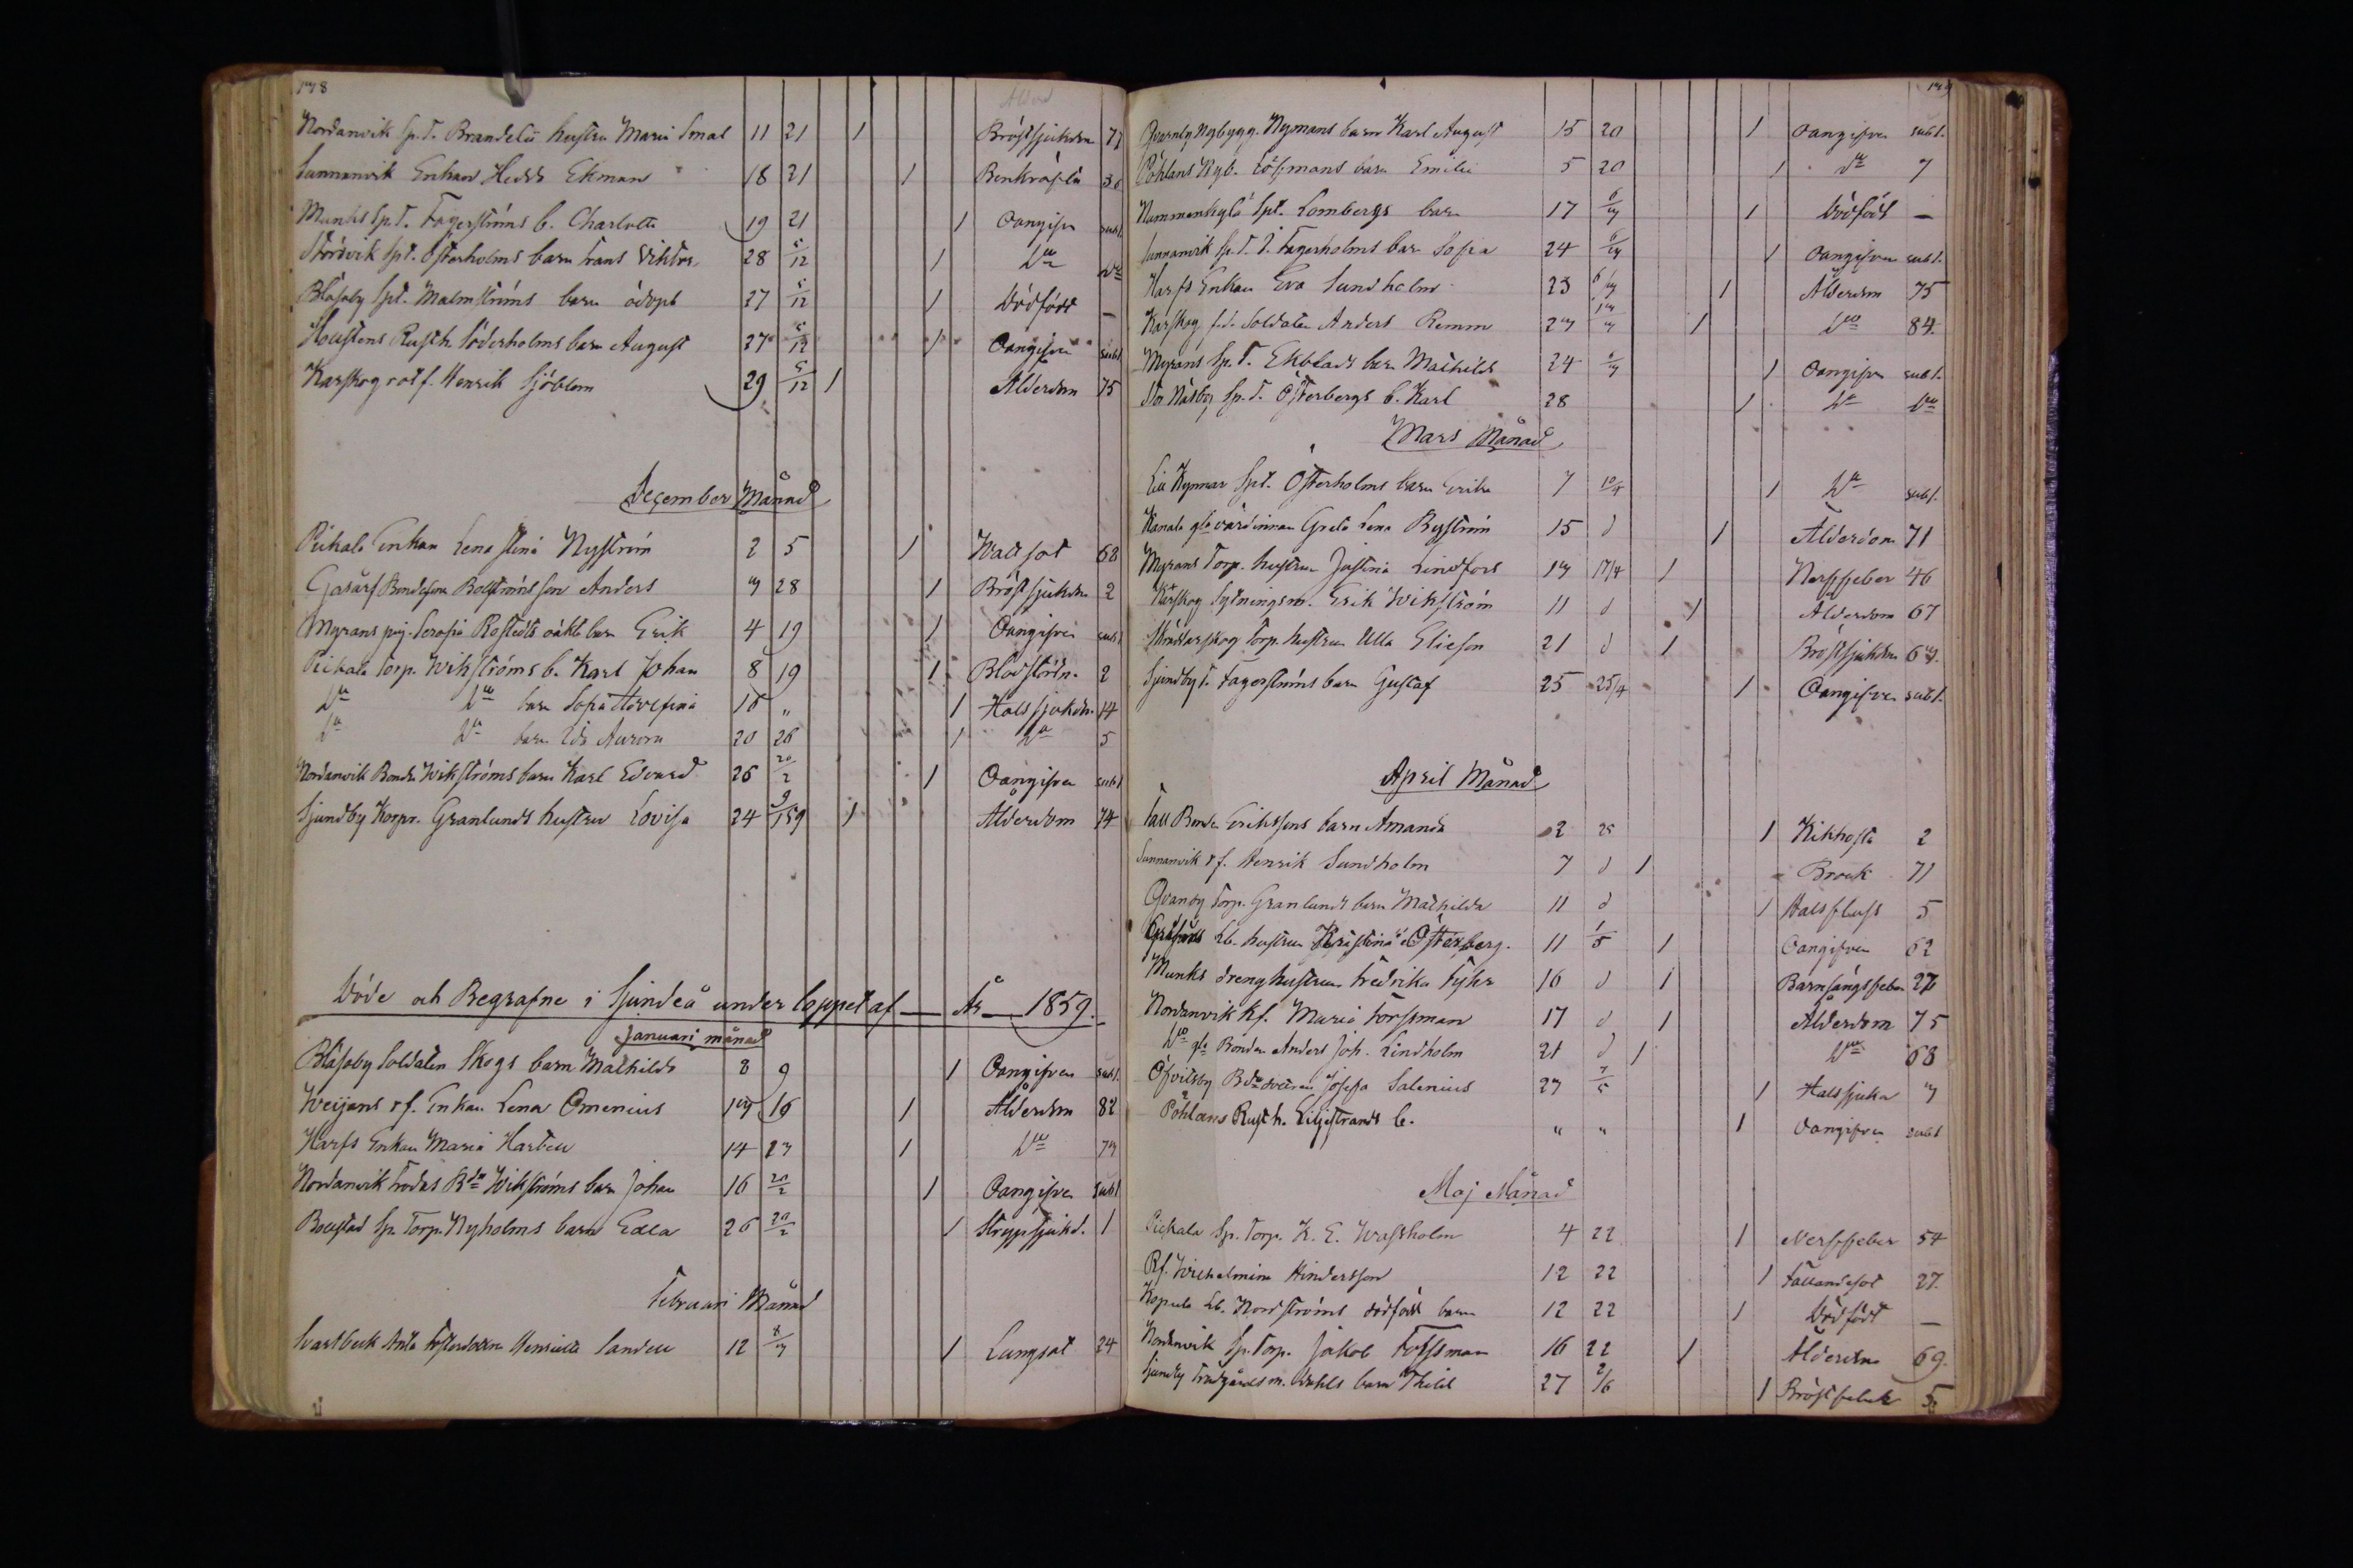 178
Ålderd
Nordanvik Sp.T. Brandelii hustru Maria Smal 11 21 1 Bröstsjukdm 77
Sunnanvik Enkan Hedda Ekman 18 21 1 Benkräfta 30
Munks Sp.T. Fagerströms b. Charlotta 19 21 1 Oangifven subt.
Störsvik Spt. Österholms barn Frans Viktor 28 5/12 1 Do Do
Blåsaby Spt. Malmströms barn ödöpt 27 5/12 1 Dödfödt —
Rusth. Söderholms barn August 27 5/12 1 Oangifven subt
Karskog rotf. Henrik Sjöblom 29 5/12 1 Ålderdom 75
December Månad
Pickala Enkan Lena Stina Nyström 2 5 1 Wattsot 68
Gårdsr Bondesonen Bollströms son Anders 7 28 1 Bröstsjukdm 2
Myrans pig. Serafia Rostedts oäkta barn Erik 4 19 1 Oangifven subt
Pickala Torp. Wikströms b. Karl Johan 8 19 1 Blodstörtn. 2
Do Do barn Sofia Josefina 15 " 1 Halssjukdm 14
Do Do barn Ida Aurora 20 26 1 Do 5
Nordanvik Bonds Wikströms barn Karl Edvard 26 20/2 1 Oangifven subt
Sjundby Korpr. Granlunds hustru Lovisa 24 9/1 59 1 Ålderdom 74
Döde och Begrafne i Sjundeå under loppet af — År — 1859.
Januari månad
Blåsaby Soldaten Skogs barn Mathilda 8 9 1 Oangifven subt.
Weijans rf. Enkan Lena Omenius 17 16 1 Ålderdm 82
Harfs Enkan Maria Hartell 14 23 1 Do 77
Nordanvik Frodes Bdn Wikströms barn Johan 16 20/2 1 Oangifven subt
Böllstad Sp. Torp. Nyholms barn Edla 26 20/2 1 Strypsjukd. 1
Februari Månad
Svartbeck Fosterdottren Henrietta Sandell 12 8/7 1 Lungsot 24
179
Qvarnby Nybygg. Nymans barn Karl August 15 20 1 Oangifven subt.
Pohlans Nyb. Löfmans barn Emilie 5 20 1 Do 7
Nummenkylä Spt. Lombergs barn 17 6/3 1 Dödfödt —
Sunnanvik Sp.T. J. Fagerholms barn Sofia 24 6/3 1 Oangifven subt.
Harfs Enkan Eva Sundholm 23 6/3 1 Ålderdm 75
Karskog f.d. Soldaten Anders Remm 27 1 Do 84.
Myrans Sp.T. Ekblads barn Mathilda 24 6/3 1 Oangifven subt.
Stor Näsby Sp.T. Österbergs b. Karl 28 1 Do Do
Mars Månad
Lill Kynnar Spt. Österholms barn Erika 7 10/4 1 Do subt.
Kanala gla värdinnan Greta Lena Byström 15 d 1 Ålderdom 71
Myrans Torp. hustrun Justina Lindfors 17 17/4 1 Nerffeber 46
Karskog Sytningsm. Erik Wikström 11 d 1 Ålderdom 67
Skräddarskog Torp. hustrun Ulla Elieson 21 d 1 Bröstsjukdm 67.
Sjundby T. Fagerströms barn Gustaf 25 25/4 1 Oangifven subt.
April Månad
Fall Bonden Erikssons barn Amanda 2 25 1 Kikhosta 2
Sunnanvik rf. Henrik Sundholm 7 d 1 Brock 71
Qvarnby Torp. Granlunds barn Mathilda 11 d 1 Halsfluss 5
Lb. hustrun Kristina Österberg. 11 1/5 1 Oangifven 62
Munks drenghustrun Fredrika Fyhr 16 d 1 Barnsängsfeber 27
Nordanvik Rf. Maria Forssman 17 d 1 Ålderdom 75
Do gla Bonden Anders Joh. Lindholm 21 d 1 Do 68
Öfvitsby Bdedottren Josefa Salenius 27 7/5 1 Halssjuka 7
Pohlans Rusth. Liljestrands b. " " 1 Oangifven subt
Maj Månad
Pickala Sp. Torp. K. E. Wassholm 4 22 1 Nerffeber 54
Rf. Wilhelmina Hindersson 12 22 1 Fallandesot 27.
Kopula Lb. Nordströms dödfödt barn 12 22 1 Dödfödt —
Nordanvik Sp. Torp. Jakob Forssman 16 22 1 Ålderdm 69.
Sjundby Trädgårdsm. Dahls barn Thild 27 2/6 1 Bröstfeber 5